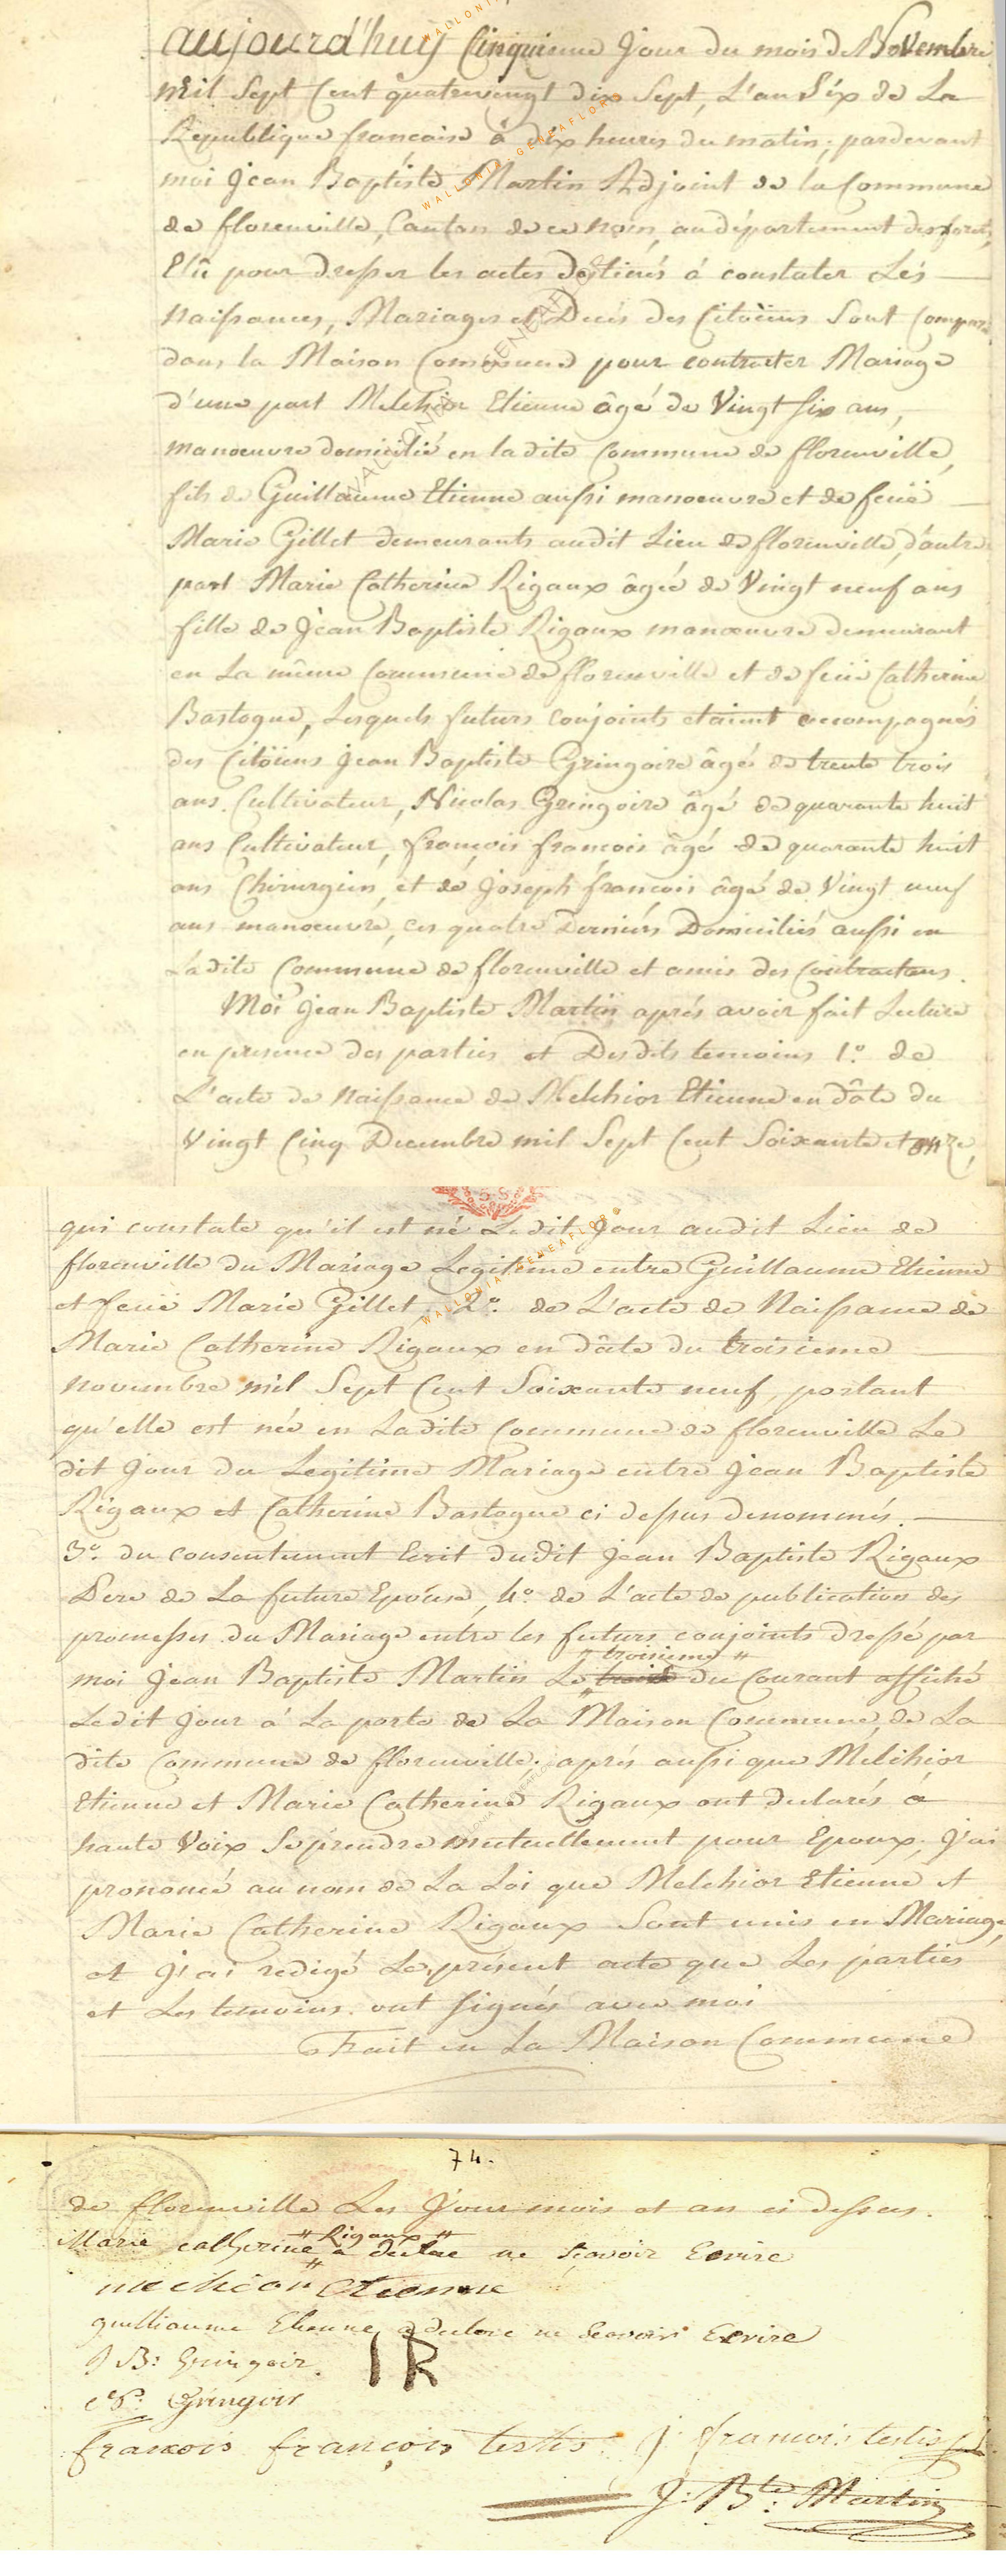 aujourd'huy Cinquieme Jour du mois de Novembre
mil Sept Cent quatrevingt dix Sept, L'an Six de La
Republique francaise à dix heures du matin; pardevant
moi Jean Baptiste Martin Adjoint de la Commune
de florenville, Canton de ce nom, au département des forets,
Elû pour dresser les actes destinés á constater Les
Naissances, Mariages et Decés des Citoïens Sont Compar
dans la Maison Commune pour contracter Mariage
d'une part Melchior Etienne âgé de Vingt six ans,
manoeuvre domicilié en ladite Commune de florenville,
fils de Guillaume Etienne aussi manoeuvre et de feuë
Marie Gillet demeurants audit Lieu de florenville, d'autre
part Marie Catherine Rigaux âgée de Vingt neuf ans
fille de Jean Baptiste Rigaux manoeuvre demeurant
en La même Commune de florenville et de feuë Catherine
Bastogne, Lesquels futurs conjoints etaient accompagnés
des Citoïens Jean Baptiste Gringoire âgé de trente trois
ans Cultivateur, Nicolas Gringoire âgé de quarante huit
ans Cultivateur, françois francois âgé de quarante huit
ans Chirurgien, et de Joseph françois âgé de Vingt neuf
ans manoeuvre, ces quatre Derniers Domiciliés aussi en
Ladite Commune de florenville et amis des Contractans.
Moi Jean Baptiste Martin aprés avoir fait Lecture
en presence des parties et Desdits temoins 1.° de
L'acte de Naissance de Melchior Etienne en dâte du
Vingt Cinq Decembre mil Sept Cent Soixante et onze,
qui constate qu'il est né Ledit Jour audit Lieu de
florenville du Mariage Legitime entre Guillaume Etienne
et feuë Marie Gillet, 2.° de L'acte de Naissance de
Marie Catherine Rigaux en dâte du troisieme
novembre mil Sept Cent Soixante neuf, portant
qu'elle est née en Ladite Commune de florenville Le
dit Jour du Legitime Mariage entre Jean Baptiste
Rigaux et Catherine Bastogne ci dessus denommés.
3.° du consentement Ecrit dudit Jean Baptiste Rigaux
Pere de La future Epouse, 4.° de L'acte de publication des
promesses du Mariage entre les futurs conjoints dressé par
" troisieme "
moi Jean Baptiste Martin Le trois du Courant affiché
Ledit Jour á La porte de La Maison Commune de La
dite Commune de florenville; aprés aussi que Melchior
Etienne et Marie Catherine Rigaux ont declarés á
haute Voix Se prendre mutuellement pour Epoux, J'ai
prononcé au nom de La Loi que Melchior Etienne et
Marie Catherine Rigaux Sont unis en Mariage,
et J'ai redigé Le présent acte que Les parties
et Les temoins ont signés avec moi
Fait en La Maison Commune
74.
de florenville Les Jour mois et an ci dessus.
" Rigaux "
Marie catherine a declare ne scavoir Ecrire
mechior Etienne
guilliaume Etienne a declare ne Scavoir Ecrire
J B: Gringoir
N: Gringoir
IR
francois françois testis J: francois testis
J: B.te: Martin